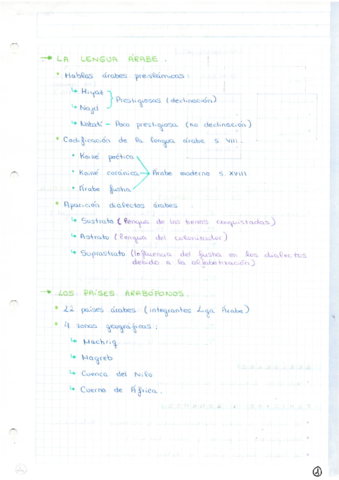 → LA LENGUA ÁRABE.
• Hablas árabes preislámicas:
↳ Hiyaz
↳ Najd
Prestigiosas (declinación)
↳ Nabatí - Poco prestigiosa (no declinación)
• Codificación de la lengua árabe s. VIII.
• Koiné poética
• Koiné coránica → Árabe moderno s. XVIII
• Árabe fusha
• Aparición dialectos árabes
↳ Sustrato (Lengua de las tierras conquistadas)
↳ Astrato (Lengua del colonizador)
↳ Suprastrato (Influencia del fusha en los dialectos
debido a la alfabetización)
→ LOS PAÍSES ARABÓFONOS.
• 22 países árabes (integrantes Liga Árabe)
• 4 zonas geográficas:
↳ Machriq
↳ Magreb
↳ Cuenca del Nilo
↳ Cuerno de África.
1